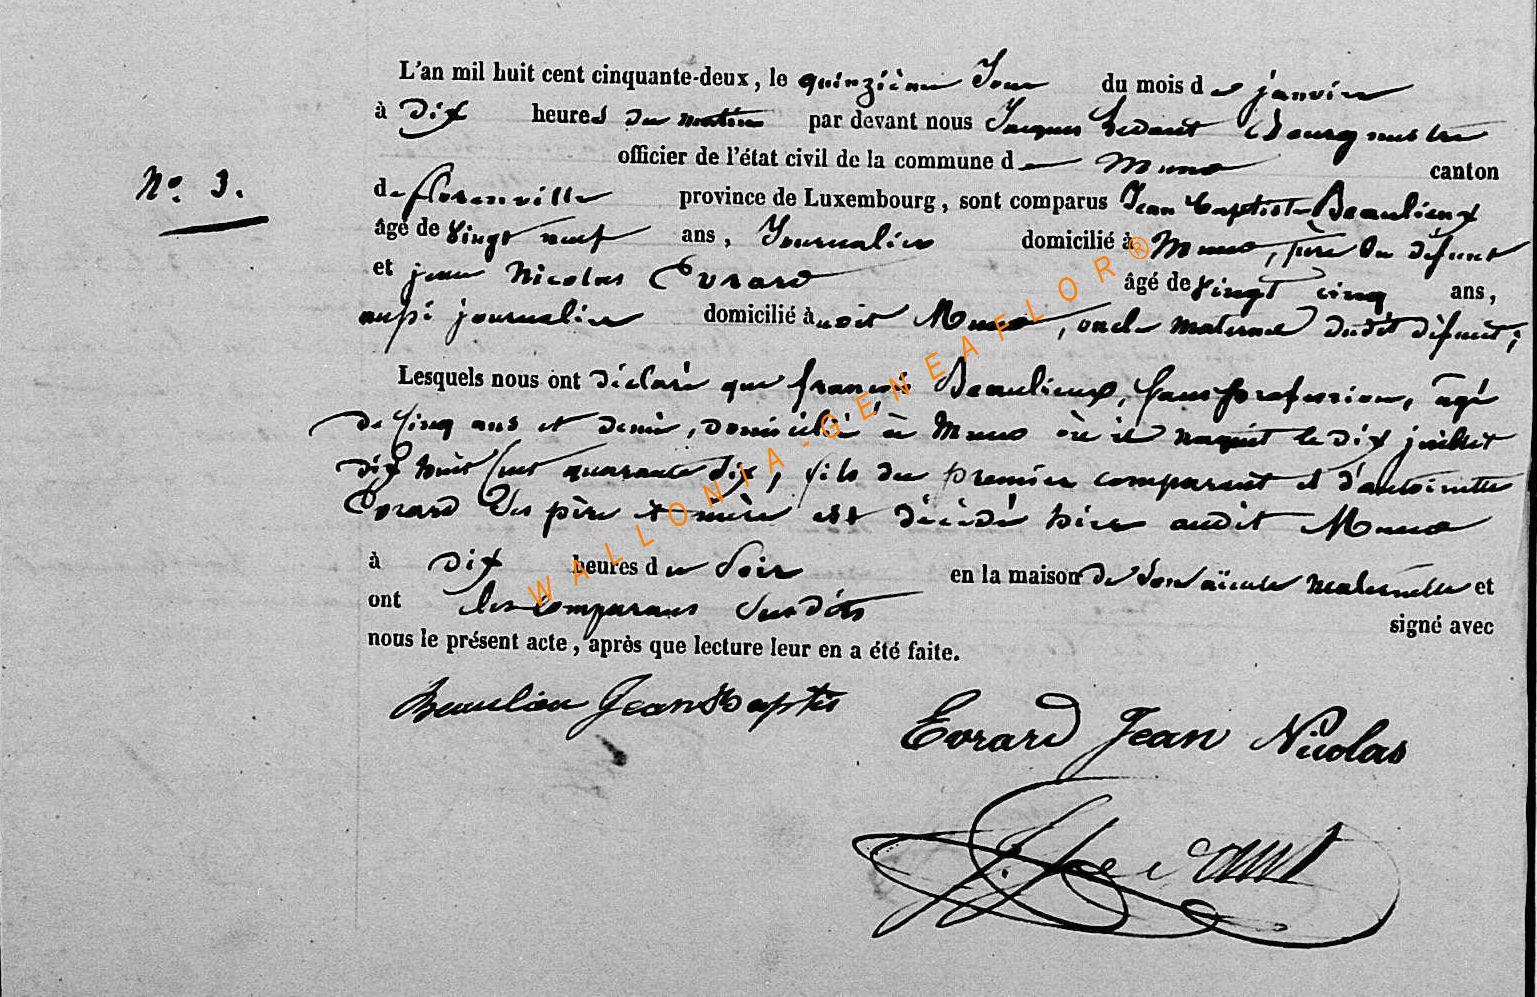 L'an mil huit cent cinquante-deux, le quinzième Jour du mois de janvier
à Dix heures du matin par devant nous Jacques Bourgmestre
officier de l'état civil de la commune de Muno canton
N° 3.
de florenville province de Luxembourg, sont comparus Jean Baptiste Beaulieux
âgé de vingt neuf ans, Journalier domicilié à Muno, père du défunt
et jean Nicolas Evrard âgé de vingt cinq ans,
aussi journalier domicilié audit Muno, oncle maternel dudit défunt;
Lesquels nous ont déclaré que françois Beaulieux, sans profession, agé
de cinq ans et demie, domicilié à Muno où il naquit le dix juillet
dix huit cent quarante six, fils du premier comparant et d'antoinette
Evrard Ses père et mère est décédé hier audit Muno
à dix heures du soir en la maison de son aïeule maternelle et
ont les comparans susdits signé avec
nous le présent acte, après que lecture leur en a été faite.
Beaulieu Jean Baptis
Evrard Jean Nicolas
WALLONIA-GENEAFLOR®